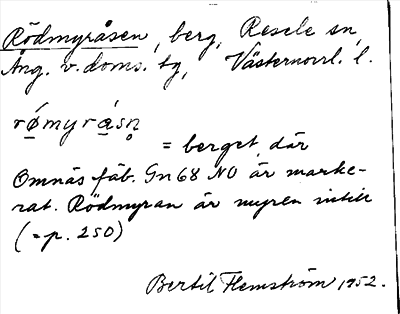 Rödmyråsen, berg, Resele sn,
Ång. v. doms. tg, Västernorrl. l.
rö́myrásn̥
= berget, där
Omnäs fäb. Gn 68 NO är marke-
rat. Rödmyran är myren intill
(= p. 250)
Bertil Flemström 1952.